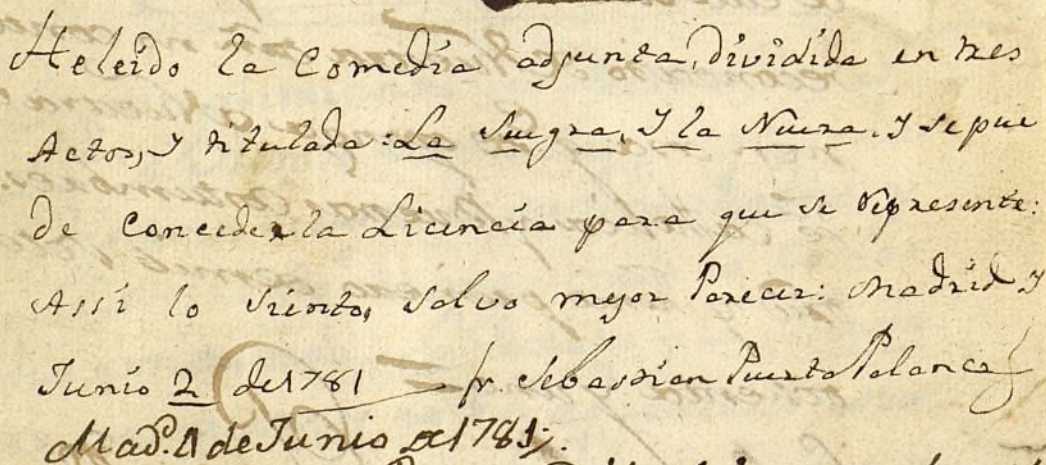 He leido la Comedia adjunta, dividida en tres
Actos, y titulada: La Suegra, y la Nuera. y se pue
de Conceder la Licencia para que se Represente:
Assi lo siento, salvo mejor Parecer: Madrid y
Junio 2 de 1781 fr. Sebastian Puerta Palanca
Mad.d de Junio de 1781;.